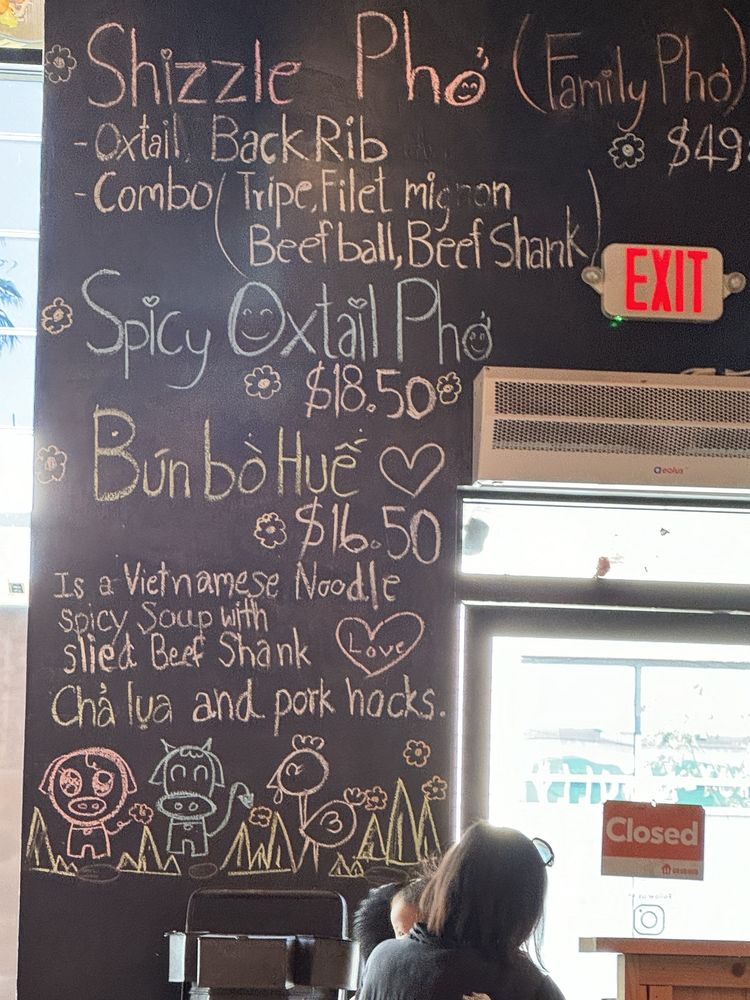 Shizzle Phở (Family Phở)
- Oxtail, Back Rib $49
- Combo (Tripe, Filet mignon
Beef ball, Beef Shank)
EXIT
Spicy Oxtail Phở
$18.50
Bún bò Huế
$16.50
Is a Vietnamese Noodle
spicy Soup with
slied Beef Shank
Love
Chả lụa and pork hocks.
aeolus
Closed
Follow us